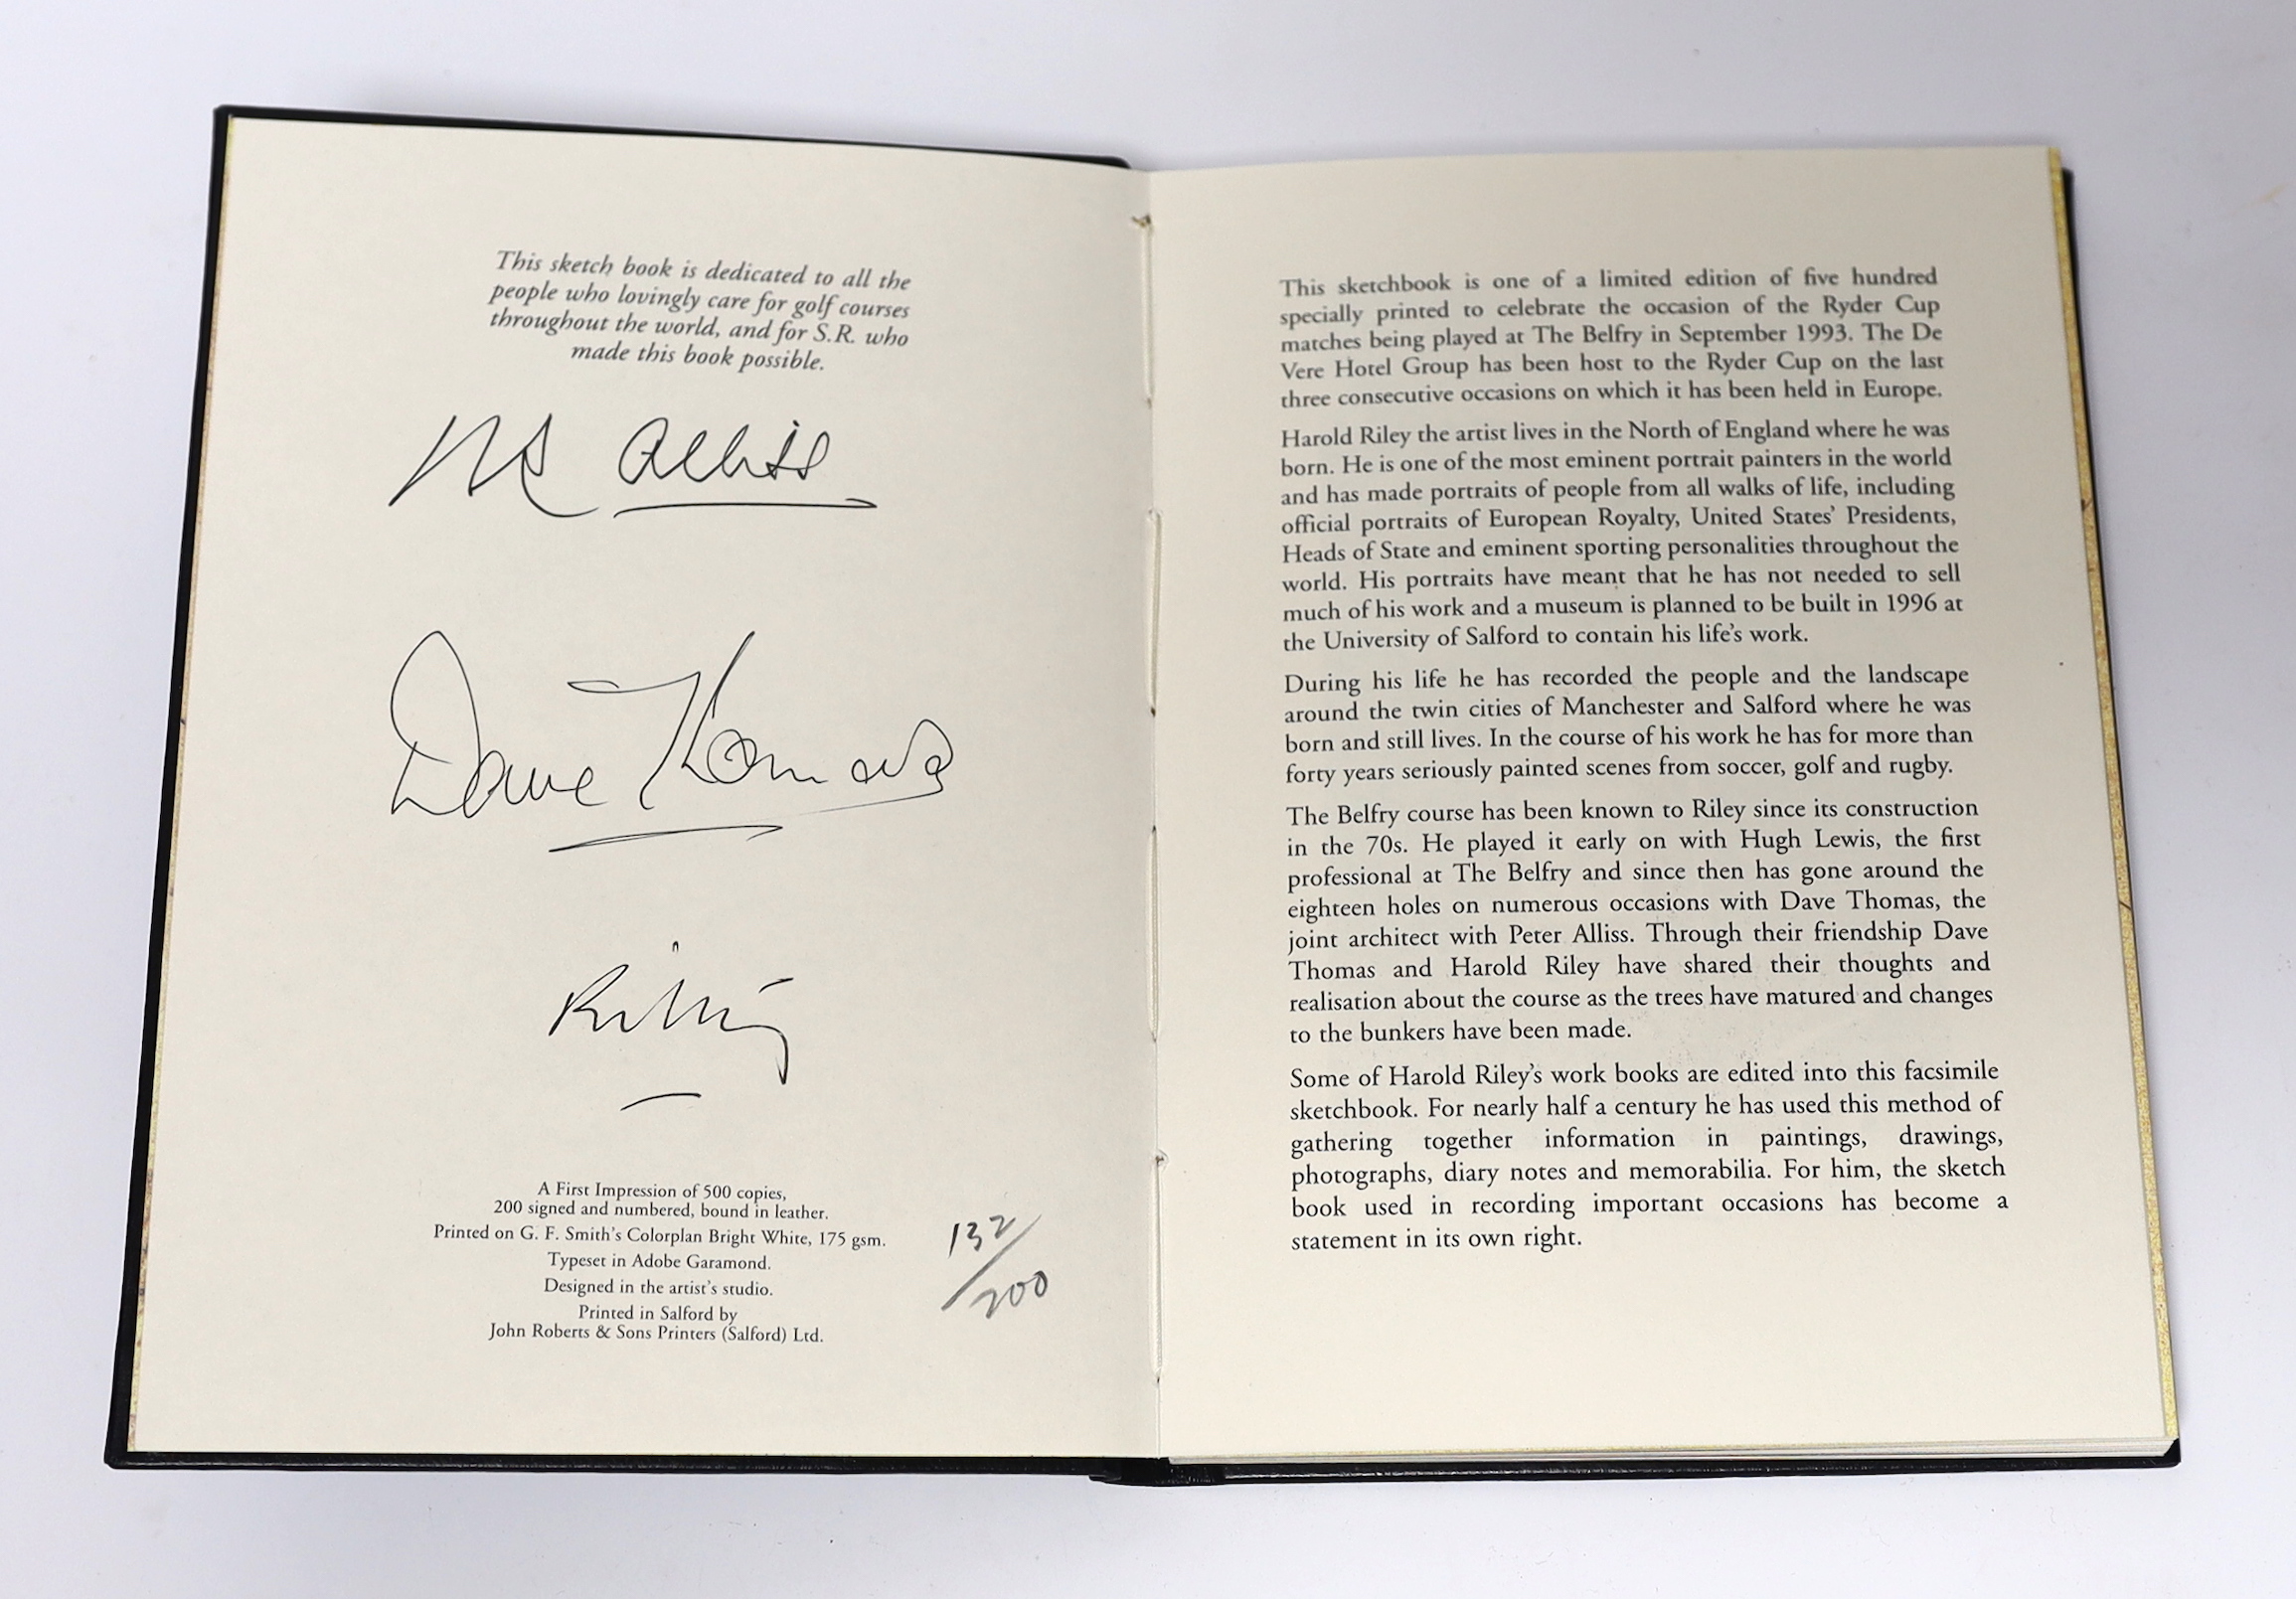 This sketch book is dedicated to all the
people who lovingly care for golf courses
throughout the world, and for S.R. who
made this book possible.
Alliss
Dave Thomas
Riley
A First Impression of 500 copies,
200 signed and numbered, bound in leather.
Printed on G. F. Smith's Colorplan Bright White, 175 gsm.
Typeset in Adobe Garamond.
Designed in the artist's studio.
Printed in Salford by
John Roberts & Sons Printers (Salford) Ltd.
132/200
This sketchbook is one of a limited edition of five hundred
specially printed to celebrate the occasion of the Ryder Cup
matches being played at The Belfry in September 1993. The De
Vere Hotel Group has been host to the Ryder Cup on the last
three consecutive occasions on which it has been held in Europe.
Harold Riley the artist lives in the North of England where he was
born. He is one of the most eminent portrait painters in the world
and has made portraits of people from all walks of life, including
official portraits of European Royalty, United States' Presidents,
Heads of State and eminent sporting personalities throughout the
world. His portraits have meant that he has not needed to sell
much of his work and a museum is planned to be built in 1996 at
the University of Salford to contain his life's work.
During his life he has recorded the people and the landscape
around the twin cities of Manchester and Salford where he was
born and still lives. In the course of his work he has for more than
forty years seriously painted scenes from soccer, golf and rugby.
The Belfry course has been known to Riley since its construction
in the 70s. He played it early on with Hugh Lewis, the first
professional at The Belfry and since then has gone around the
eighteen holes on numerous occasions with Dave Thomas, the
joint architect with Peter Alliss. Through their friendship Dave
Thomas and Harold Riley have shared their thoughts and
realisation about the course as the trees have matured and changes
to the bunkers have been made.
Some of Harold Riley's work books are edited into this facsimile
sketchbook. For nearly half a century he has used this method of
gathering together information in paintings, drawings,
photographs, diary notes and memorabilia. For him, the sketch
book used in recording important occasions has become a
statement in its own right.